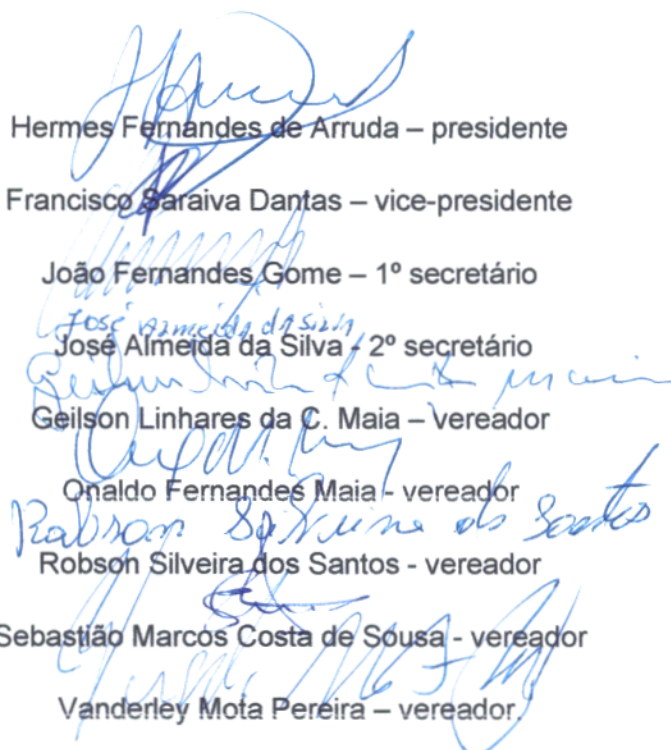 Hermes Fernandes de Arruda – presidente
Francisco Saraiva Dantas – vice-presidente
João Fernandes Gome – 1º secretário
José Almeida da Silva
José Almeida da Silva - 2º secretário
Geilson Linhares da C. Maia – vereador
Onaldo Fernandes Maia - vereador
Robson Silveira dos Santos
Robson Silveira dos Santos - vereador
Sebastião Marcos Costa de Sousa - vereador
Vanderley Mota Pereira – vereador.